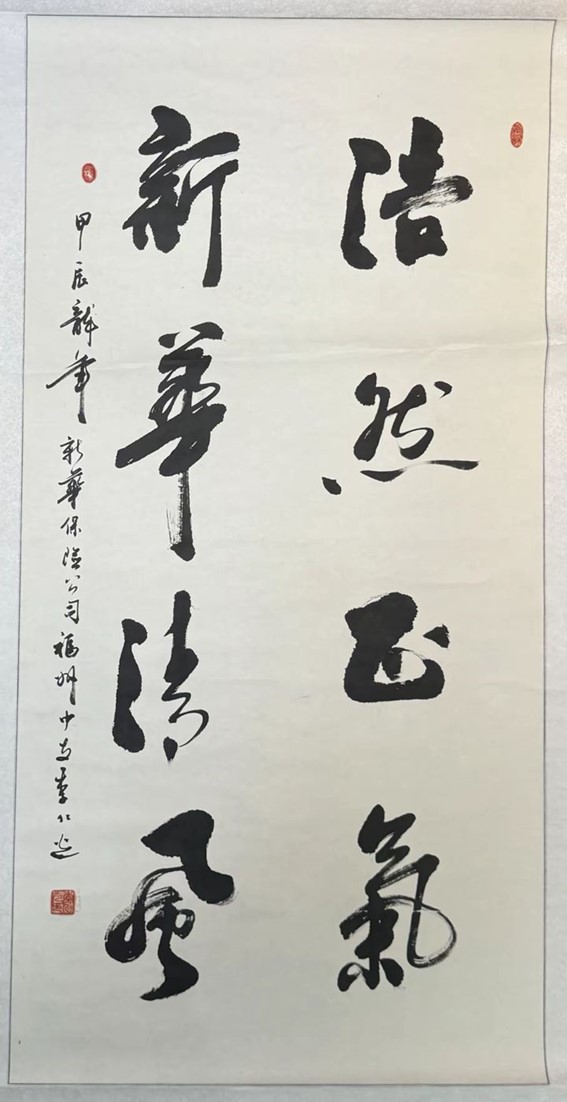 浩然正氣
新華清風
甲辰龍年 新華保險公司福州中支李仁